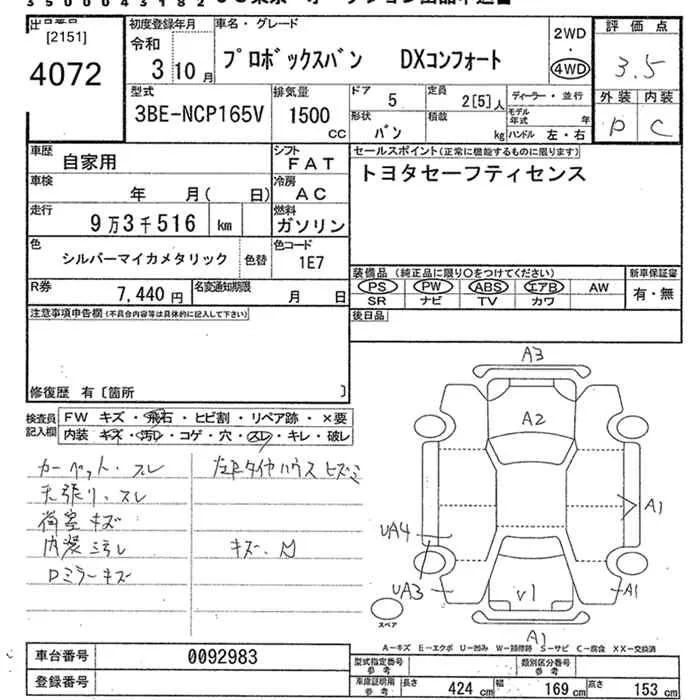 出品番号
[2151]
4072
初度登録年月
令和
3 10月
車名・グレード
プロボックスバン DXコンフォート
2WD
・
4WD
評価点
3.5
外装 内装
D C
型式
3BE-NCP165V
排気量
1500
CC
ドア
5
定員
2[5]人
形状
バン
積載
kg
ディーラー・並行
モデル年式 年
ハンドル 左・右
車歴
自家用
シフト
FAT
車検
年 月( 日)
冷房
AC
走行
9万3千516 km
燃料
ガソリン
色
シルバーマイカメタリック
色替
色コード
1E7
R券
7,440 円
名変通知期限
月 日
セールスポイント(正常に機能するものに限ります)
トヨタセーフティセンス
装備品(純正品に限り○をつけてください)
PS PW ABS エアB AW
SR ナビ TV カワ
新車保証書
有・無
後日品
注意事項申告欄(不具合内容等は具体的に記入して下さい)
修復歴 有〔箇所 〕
検査員記入欄
FW キズ・飛石・ヒビ割・リペア跡・×要
内装 キズ・汚レ・コゲ・穴・スレ・キレ・破レ
カーペット・スレ
天張り・スレ
荷室キズ
内装汚レ
Dミラーキズ
左Fタイヤハウス ヒズミ
キズ・凹
A3
A2
A1
UA4
UA3
V1
A1
A1
スペア
A-キズ E-エクボ U-凹み W-補修跡 S-サビ C-腐食 XX-交換済
車台番号
0092983
登録番号
型式指定番号
参考
類別区分番号
参考
車庫証明用
参考
長さ 424 cm 幅 169 cm 高さ 153 cm